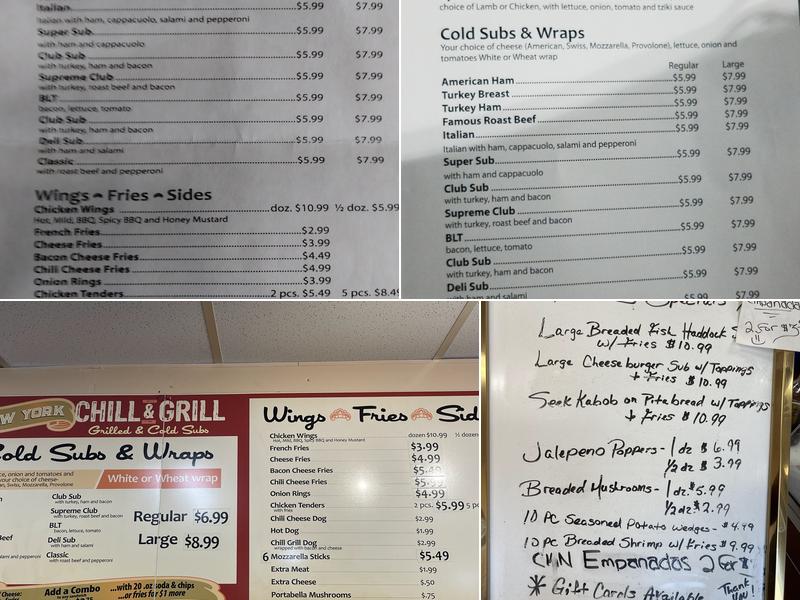 Italian $5.99 $7.99
Italian with ham, cappacuolo, salami and pepperoni
Super Sub $5.99 $7.99
with ham and cappacuolo
Club Sub $5.99 $7.99
with turkey, ham and bacon
Supreme Club $5.99 $7.99
with turkey, roast beef and bacon
BLT $5.99 $7.99
bacon, lettuce, tomato
Club Sub $5.99 $7.99
with turkey, ham and bacon
Deli Sub $5.99 $7.99
with ham and salami
Classic $5.99 $7.99
with roast beef and pepperoni
Wings Fries Sides
Chicken Wings doz. $10.99 ½ doz. $5.99
Hot, Mild, BBQ, Spicy BBQ and Honey Mustard
French Fries $2.99
Cheese Fries $3.99
Bacon Cheese Fries $4.49
Chili Cheese Fries $4.99
Onion Rings $3.99
Chicken Tenders 2 pcs. $5.49 5 pcs. $8.49
choice of Lamb or Chicken, with lettuce, onion, tomato and tziki sauce
Cold Subs & Wraps
Your choice of cheese (American, Swiss, Mozzarella, Provolone), lettuce, onion and
tomatoes White or Wheat wrap
Regular Large
American Ham $5.99 $7.99
Turkey Breast $5.99 $7.99
Turkey Ham $5.99 $7.99
Famous Roast Beef $5.99 $7.99
Italian $5.99 $7.99
Italian with ham, cappacuolo, salami and pepperoni
Super Sub $5.99 $7.99
with ham and cappacuolo
Club Sub $5.99 $7.99
with turkey, ham and bacon
Supreme Club $5.99 $7.99
with turkey, roast beef and bacon
BLT $5.99 $7.99
bacon, lettuce, tomato
Club Sub $5.99 $7.99
with turkey, ham and bacon
Deli Sub $5.99 $7.99
with ham and salami
$5.99 $7.99
EW YORK CHILL & GRILL
Grilled & Cold Subs
Cold Subs & Wraps
ce, onion and tomatoes and
our choice of cheese-
an, Swiss, Mozzarella, Provolone)
White or Wheat wrap
Club Sub
with turkey, ham and bacon
Supreme Club
with turkey, roast beef and bacon
BLT
bacon, lettuce, tomato
Beef
Deli Sub
with ham and salami
salami and pepperoni
Classic
with roast beef and pepperoni
Regular $6.99
Large $8.99
Cheese:
Add a Combo
to any sandwich
...with 20 .oz soda & chips
...or fries for $1 more
Wings Fries Sid
Chicken Wings dozen $10.99 ½ dozen
Hot, Mild, BBQ, Spicy BBQ and Honey Mustard
French Fries $3.99
Cheese Fries $4.99
Bacon Cheese Fries $5.49
Chili Cheese Fries $5.99
Onion Rings $4.99
Chicken Tenders 2 pcs. $5.99 5 pc
with fries
Chili Cheese Dog $2.99
Hot Dog $1.99
Chili Grill Dog $2.99
wrapped with bacon and cheese
6 Mozzarella Sticks $5.49
Extra Meat $1.99
Extra Cheese $.50
Portabella Mushrooms $.75
Specials
Empanadas
2 for $3
Large Breaded Fish Haddock
w/ Fries $10.99
Large Cheeseburger Sub w/ Toppings
+ Fries $10.99
Seek Kabob on Pita bread w/ Toppings
+ Fries $10.99
Jalepeno Poppers - 1 dz $6.99
1/2 dz $3.99
Breaded Mushrooms - 1 dz. $5.99
1/2 dz $2.99
10 PC Seasoned Potato Wedges - $4.49
10 pc Breaded Shrimp w/ Fries $9.99
CHN Empanadas 2 for $
* Gift Cards Available
Thank
you!